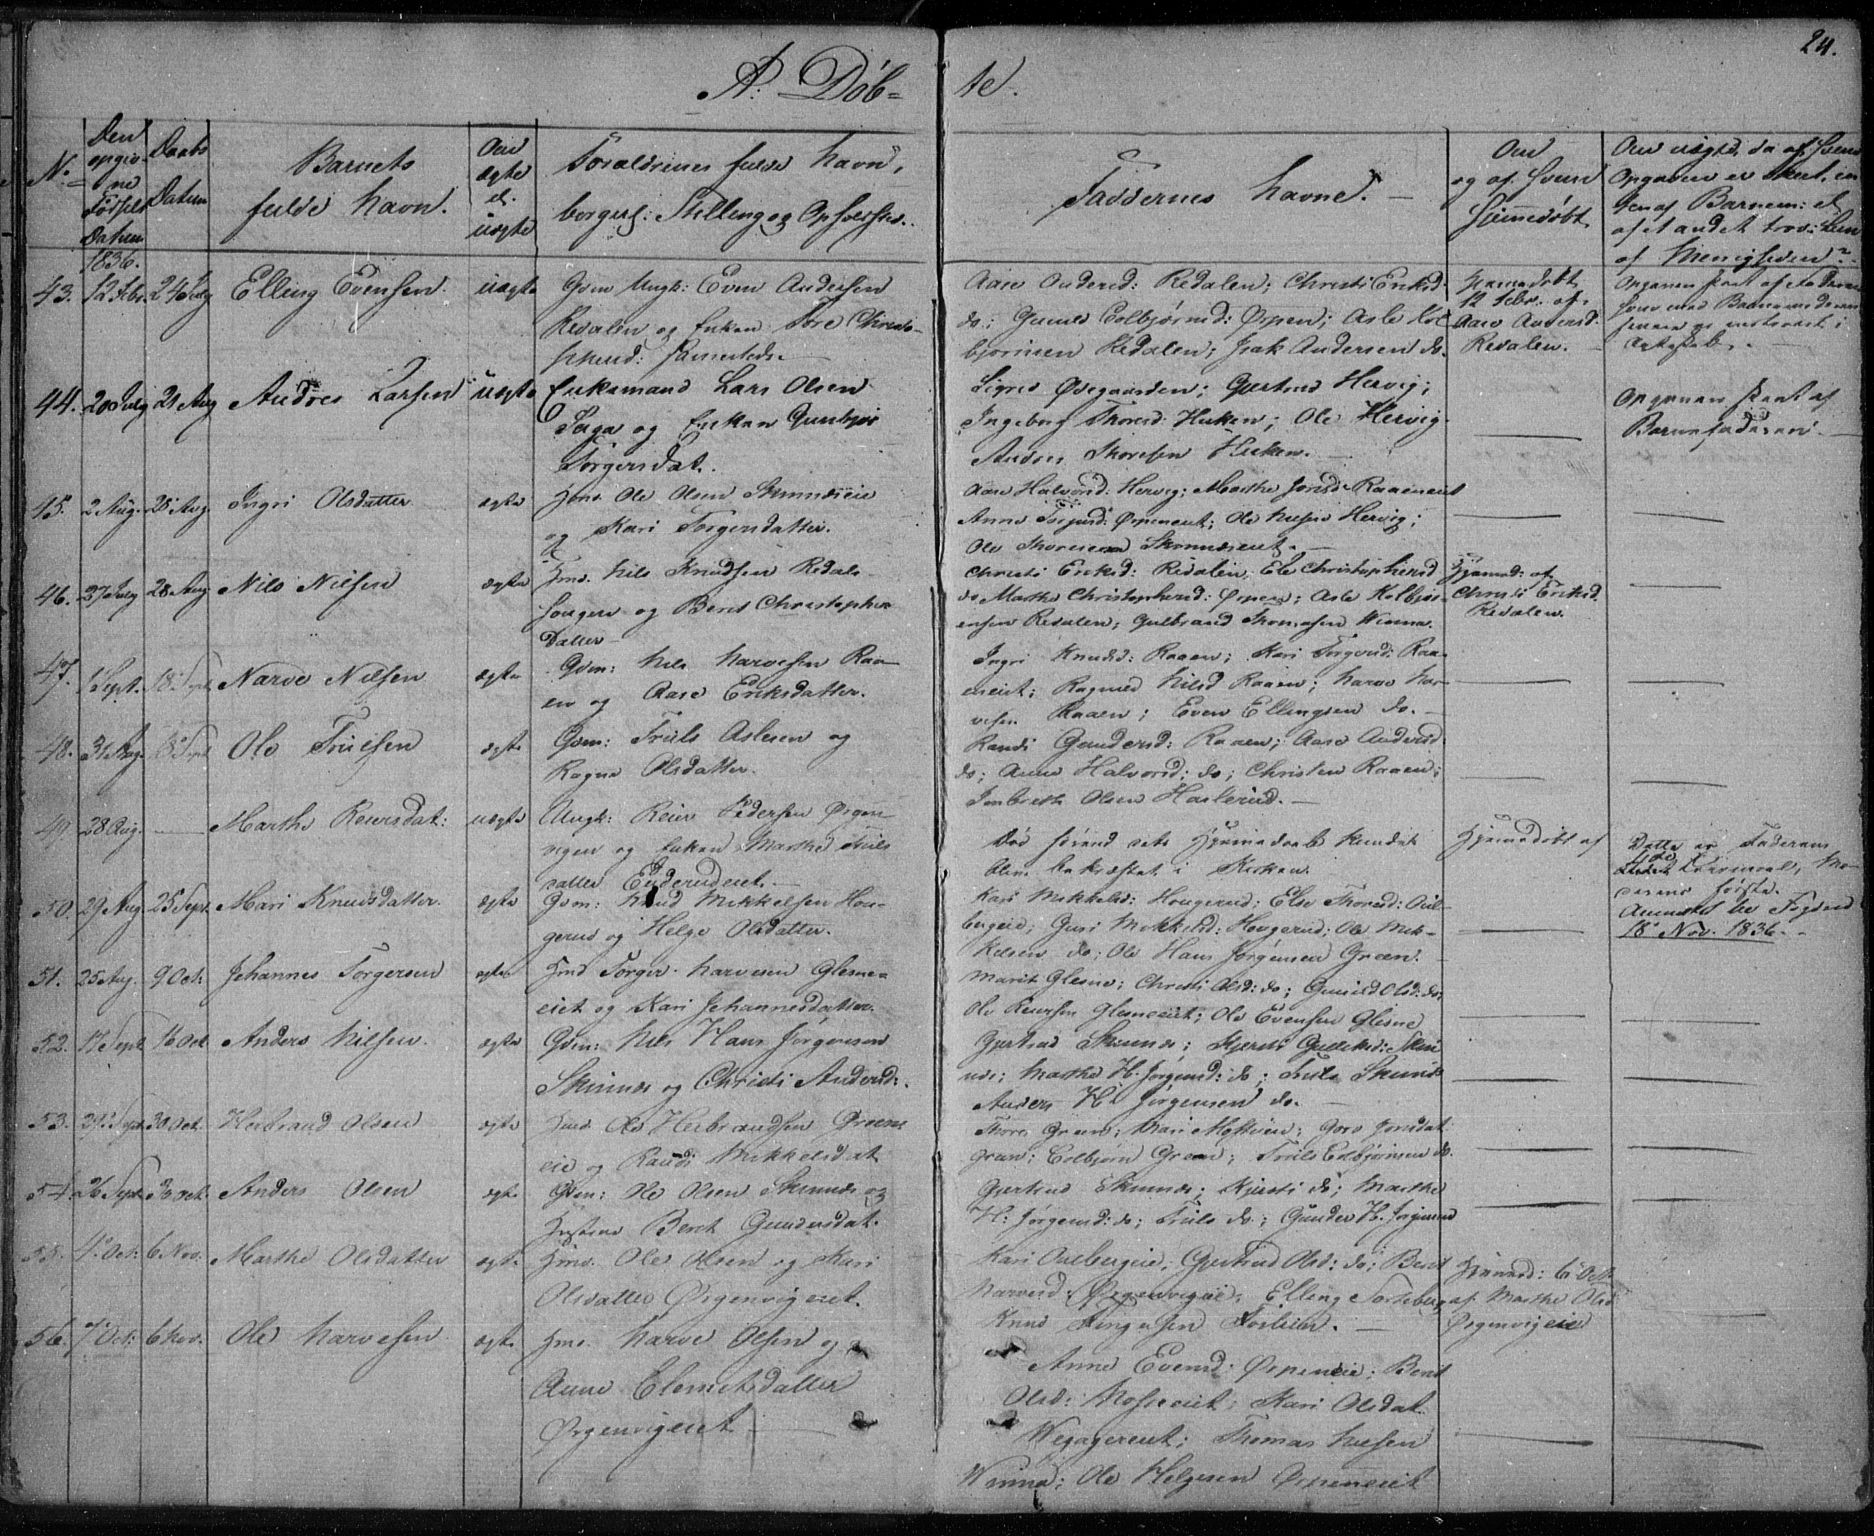 24.
A: Döb= te.
N.
Den opgivne Födsels Datum
Daabs Datum
Barnets fulde Navn.
Om ægte el. uægte
Forældrenes fulde Navn, borgerl: Stilling og Opholdssted.
Faddernes Navne.
Om og af hvem hjemmedöbt
Om uægte, da af hvem Opgaven er skeet, enten af Barnem: el. af et andet trov: Lem af Menigheden?
1836.
43. 12 Febr. 24 July Elling Evensen uægte Gvm Ungk: Even Andersen
Redalen og Enken Tore Christo-
phersd: sammesteds.
Aase Andersd: Redalen; Christi Eriksd:
do; Gunild Colbjörnsd: Ørpen; Asle Kol-
björnsen Redalen; Isak Andersen do.
Hjemmedöbt
12 Febr. af
Aase Andersd:
Redalen.
44. 20 July 21 Aug Andres Larsen uægte Enkemand Lars Olsen
og Enken Gunbjör
Torgersdat.
Sigrid Ødegaarden; Gjertrud Hervig;
Ingeborg Thoresd: Heiken; Ole Hervig
Andres Thoresen Heiken.
Opgaven skeet af
Barnefaderen
45. 2 Aug. 28 Aug. Ingri Olsdatter ægte Hmd. Ole Olsen Skinnæseie
og Kari Torgersdatter.
Aase Halvorsd: Hervig; Marthe Jonsd: Raaeneiet
Anne Torjusd: Ørpeneiet; Ole Nilsen Hervig;
Ole Thoresen Skinnæseiet.
46. 27 July 28 Aug Nils Nilsen ægte Hmd. Nils Knudsen Redals-
og Berit Christopher-
datter
Christi Eriksd: Redalen, Eli Christophersd
do Marthe Christophersd: Ørpen; Asle Kolbjör-
ensen Redalen; Gulbrand Thomasen Winna.
Hjemmed: af
Christi Eriksd.
Redalen.
47. 1 Sept. 18 Sept Narve Nilsen ægte Gvm: Nils Narvesen Raa-
en og Aase Eriksdatter.
Ingri Knudsd: Raaen; Kari Torgersd: Raa-
eneiet; Ragnild Nilsd Raaen; Narve Nar-
vesen Raaen; Even Ellingsen do.
48. 31 Aug. 18 Sept Ole Trulsen ægte Gvm: Truls Aslesen og
Ragne Olsdatter.
Randi Gundersd: Raaen; Aase Andersd:
do; Anne Halvorsd: do; Christen Raaen;
Imbreth Olsen Haslerud.
49. 28 Aug. Marthe Reiersdat: uægte Ungk: Reier Pedersen Ørgen-
vigen og Enken Marthe Truls
datter Enderudeiet.
Död förend dets Hjemmedaab kunde
blive bekræftet i Kirken.
Hjemmedöbt af
Dette er Faderens
Leiermaal, Mo-
derens förste.
Anmeldt for Fogden
18 Nov. 1836.
50. 29 Aug. 25 Sept. Mari Knudsdatter. ægte Gvm: Knud Mikkelsen Hou-
gerud og Helge Olsdatter.
Kari Mikkelsd: Hougerud; Else Thoresd: Aul-
bergeie; Guri Mikkelsd: Hougerud; Ole Mik-
kelsen do; Ole Hans Jörgensen Green.
51. 25 Aug. 9 Oct: Johannes Torgersen ægte Hmd Torger Narvesen Glesne-
eiet og Kari Johannesdatter.
Marit Glesne; Christi Olsd: do; Gunild Olsd: do;
Ole Reiersen Glesneeiet; Ole Evensen Glesne
52. 17 Sept 16 Oct Anders Nilsen. ægte Gvm: Nils Hans Jörgensen
Skinnes og Christi Andersd:
Gjertrud Skinnes; Kjersti Gulliksd: Skin-
nes; Marthe H. Jörgensd: do; Truls Skinnes
Anders H. Jörgensen do.
53. 29 Sept 30 Oct. Herbrand Olsen ægte Hmd Ole Herbrandsen Greens
eie og Randi Mikkelsdat
Thore Green; Mari Mossein; Goro Jonsdat
Green; Colbjörn Green; Truls Colbjörnsen do.
54. 26 Sept. 30 Oct. Anders Olsen ægte Gvm: Ole Olsen Skinnes og
Hustrue Berit Gundersdat.
Gjertrud Skinnes; Kjersti do; Marthe
H. Jörgensd: do; Truls do; Gunder H. Jörgensen
55. 4 Oct: 6 Nov. Marthe Olsdatter ægte Hmd. Ole Olsen og Kari
Olsdatter Ørgenvigeiet.
Kari Aulbergeie; Gjertrud Olsd: do; Berit
Narvesd: Ørgenvigeie; Elling
Knud
Hjemmed: 6 Oct
af Marthe Olsd
Ørgenvigeie
56. 7 Oct: 6 Nov. Ole Narvesen ægte Hmd. Narve Olsen og
Anne Clemetsdatter
Ørgenvigeiet
Anne Evensd: Ørpeneie; Berit
Olsd: Moseeiet; Kari Olsdat.
Thomas Nilsen
Winna; Ole Helgesen Ørpeneeiet